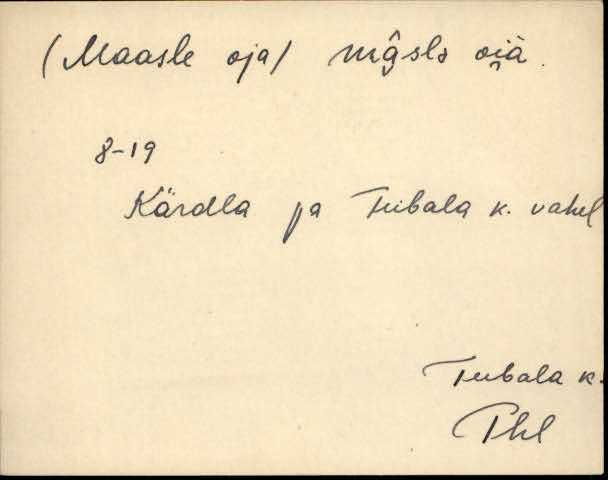 (Maasle oja)
8-19
Kärdla ja Tubala k. vahel
Tubala k.
Phl